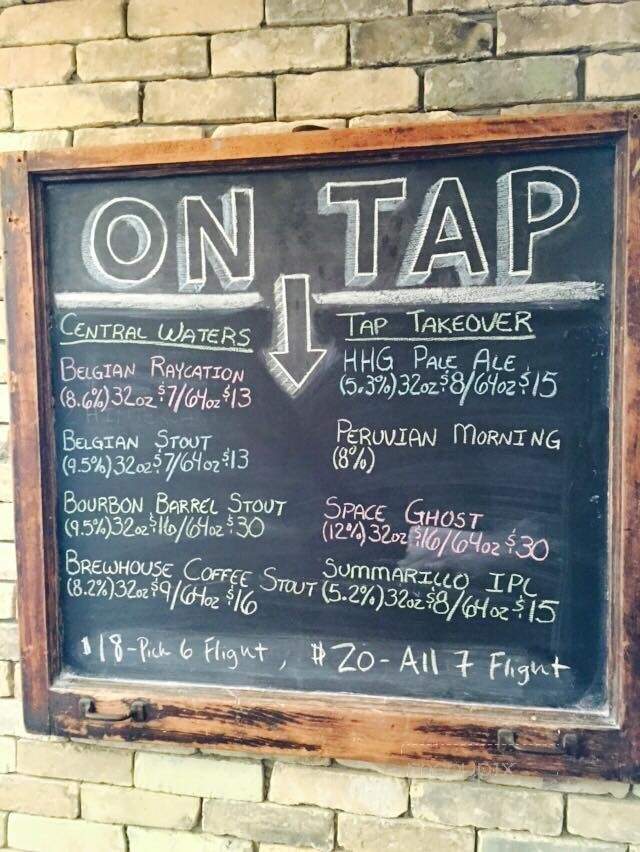 ON TAP
CENTRAL WATERS
BELGIAN RAYCATION
(8.6%) 32oz $7/64oz $13
BELGIAN STOUT
(9.5%) 32oz $7/64oz $13
BOURBON BARREL STOUT
(9.5%) 32oz $16/64oz $30
BREWHOUSE COFFEE STOUT
(8.2%) 32oz $9/64oz $16
TAP TAKEOVER
HHG PALE ALE
(5.3%) 32oz $8/64oz $15
PERUVIAN MORNING
(8%)
SPACE GHOST
(12%) 32oz $16/64oz $30
SUMMARILLO IPL
(5.2%) 32oz $8/64oz $15
$18-Pick 6 Flight, $20-All 7 Flight